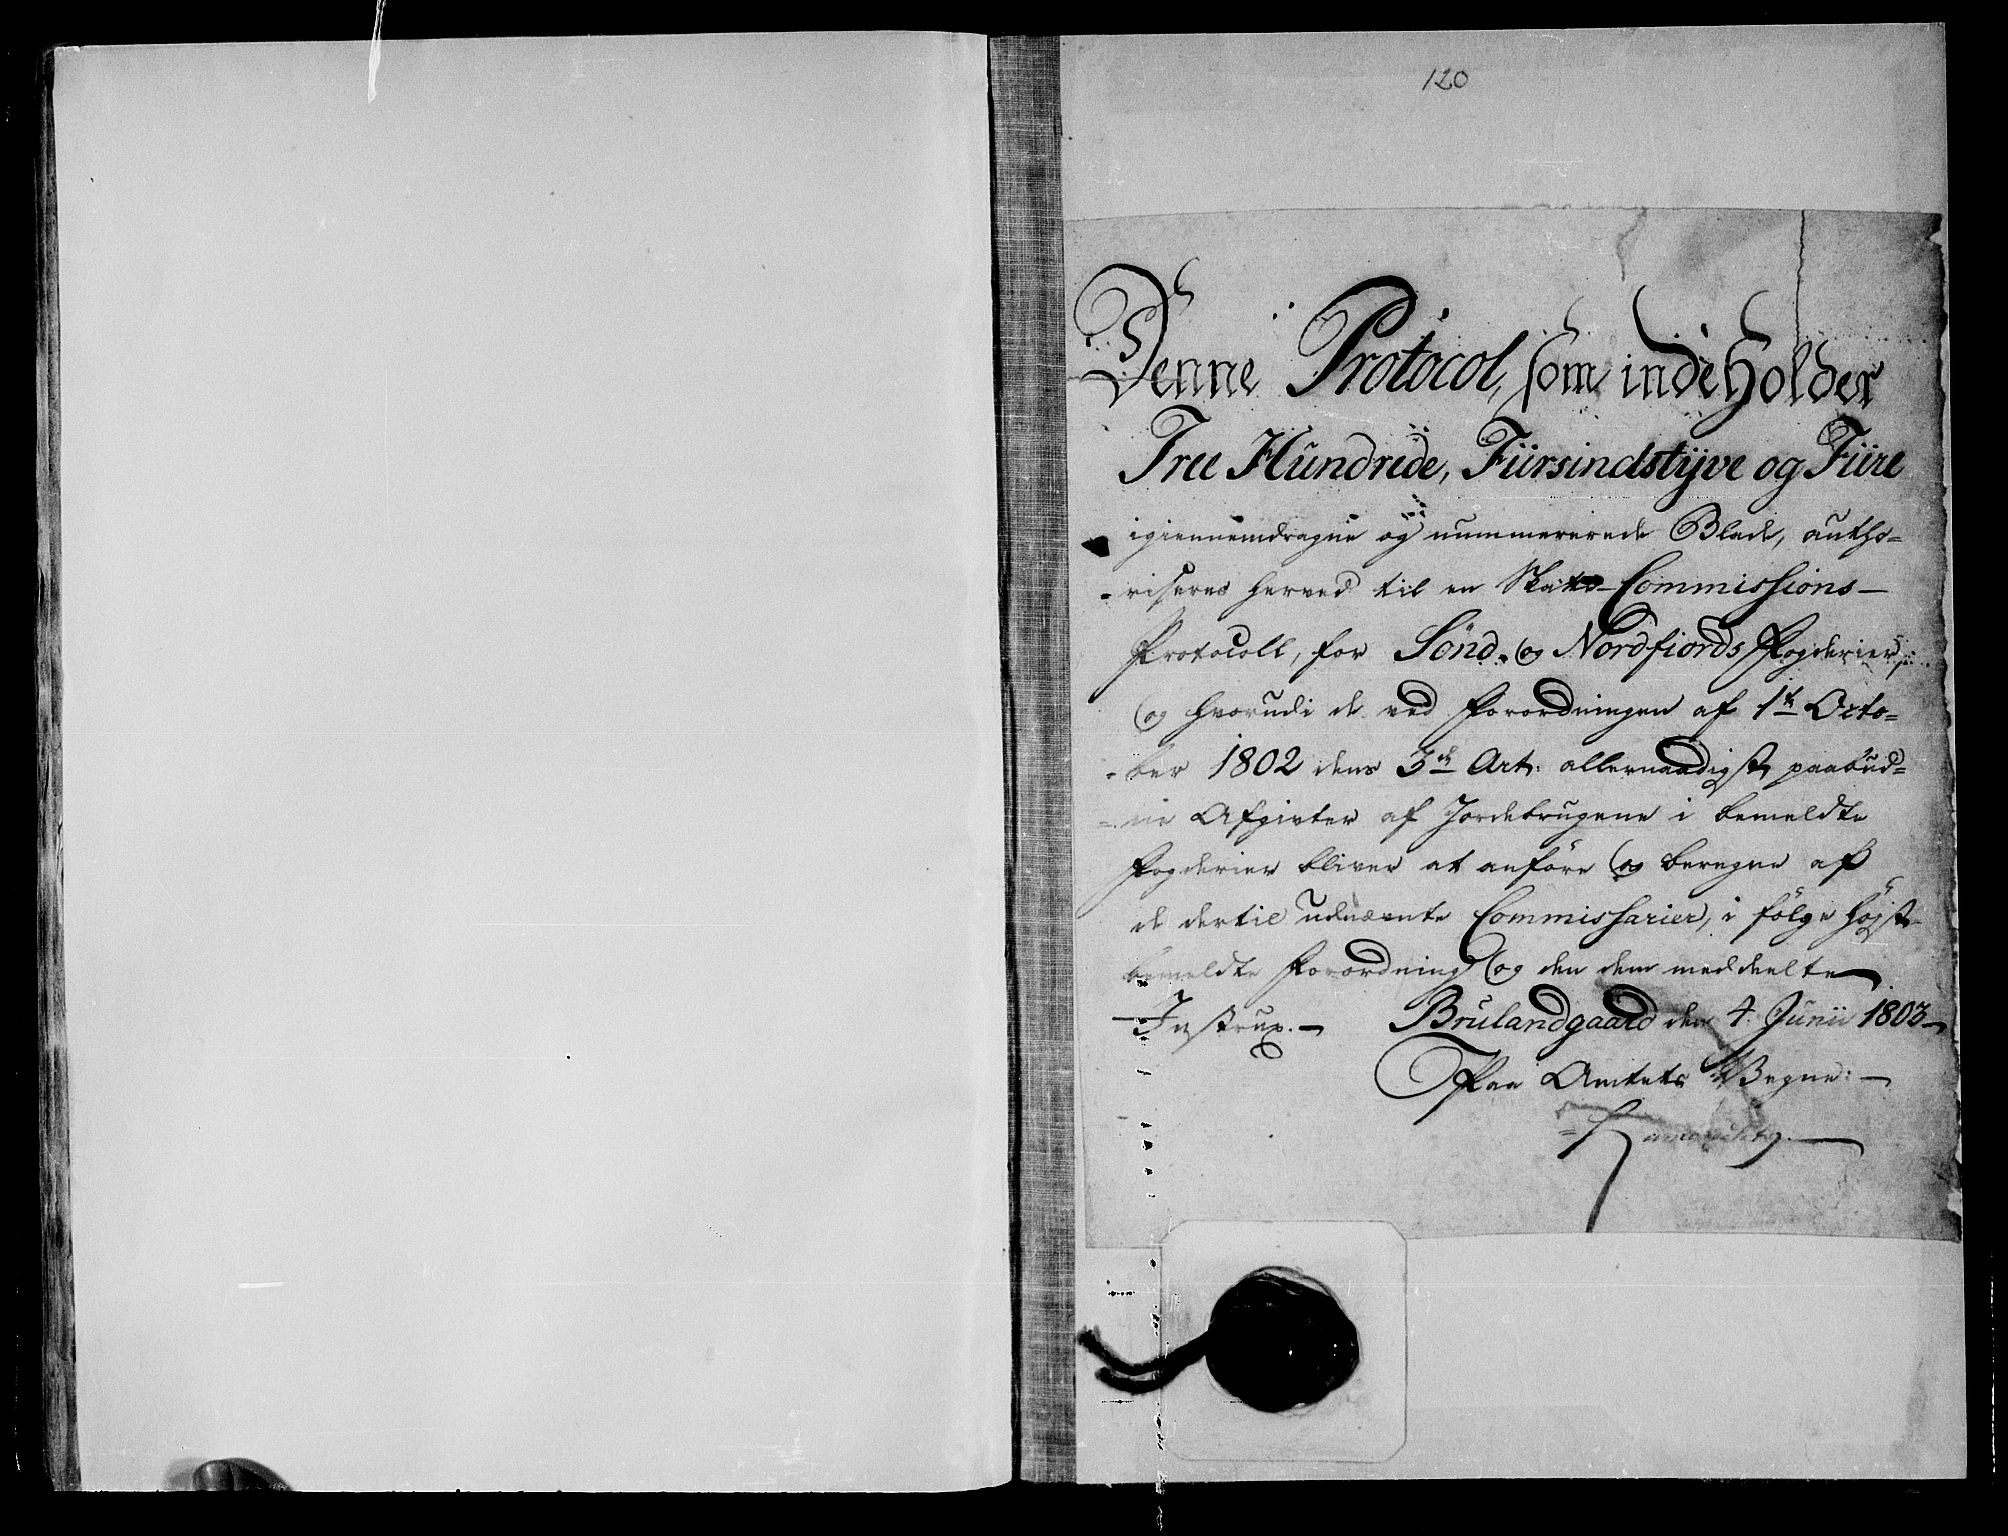 120
Denne Protocol, som indeholder
Tree Hundrede, Fiirsindstÿve og Fiire
igiennemdragne og nummererede Blade, autho=
riseres herved til en Skatte-Commissions-
Protocoll, for Sönd- og Nordfiords Fogderier,
og hvorudi de ved Forordningen af 1te Octo=
ber 1802 dens 3de Art: allernaadigst paabud=
ne Afgivter af Jordebrugene i bemeldte
Fogderier bliver at anföre og beregne af
de dertil udnævnte Commissarier, i fölge höjst-
bemeldte Forordning og den dem meddeelte
Instrux.- Brulandgaard den 4. Junii 1803-
Paa Amtets Vegne:-